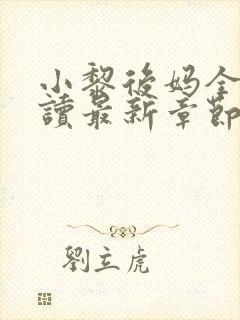 小黎後媽全
讀最新章節
劉立虎